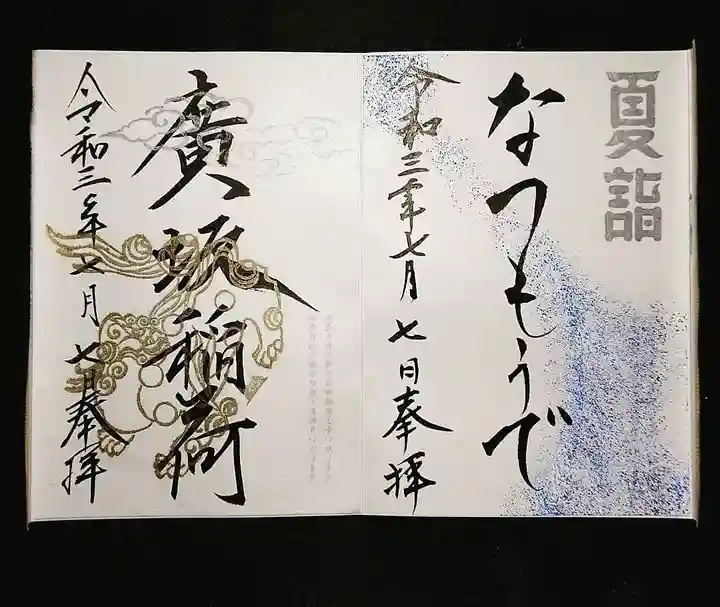 夏詣
なつもうで
令和三年七月七日奉拝
廣瀬稲荷
令和三年七月七日奉拝